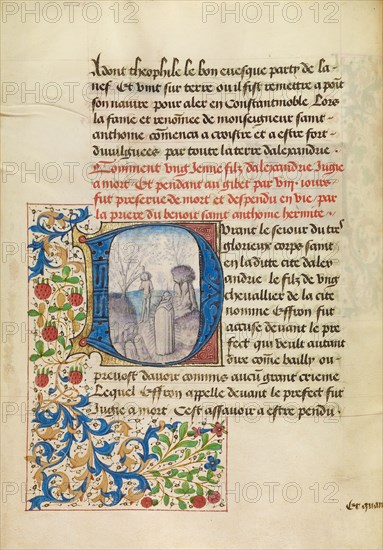 Adont theophile le bon euesque party de la
nef Et vint sur terre ou il fist remettre a point
son nauire pour aler en Constantinoble Lors
la fame et renommee de monseigneur saint
anthoine comenca a croistre et a estre fort
diuulguees par toute la terre dalexandrie.
Comment vng Jenne filz dalexandrie Jugie
a mort. Et pendant au gibet par viii. iours
fut preserue de mort et despendu en vie par
la priere du benoit saint anthoine hermite.
Durant le seiour du tres
glorieux corps saint
en la ditte cite dalex
andrie le filz de vng
cheuallier de la cite
nomme Effron fut
accuse deuant le pre
fect qui veult autant
dire come bailly ou
preuost dauoir commis aucu grant crieme
Lequel Effron appelle deuant le prefect fut
Jugie a mort. Cest assauoir a estre pendu.
Et quant
PHOTO12